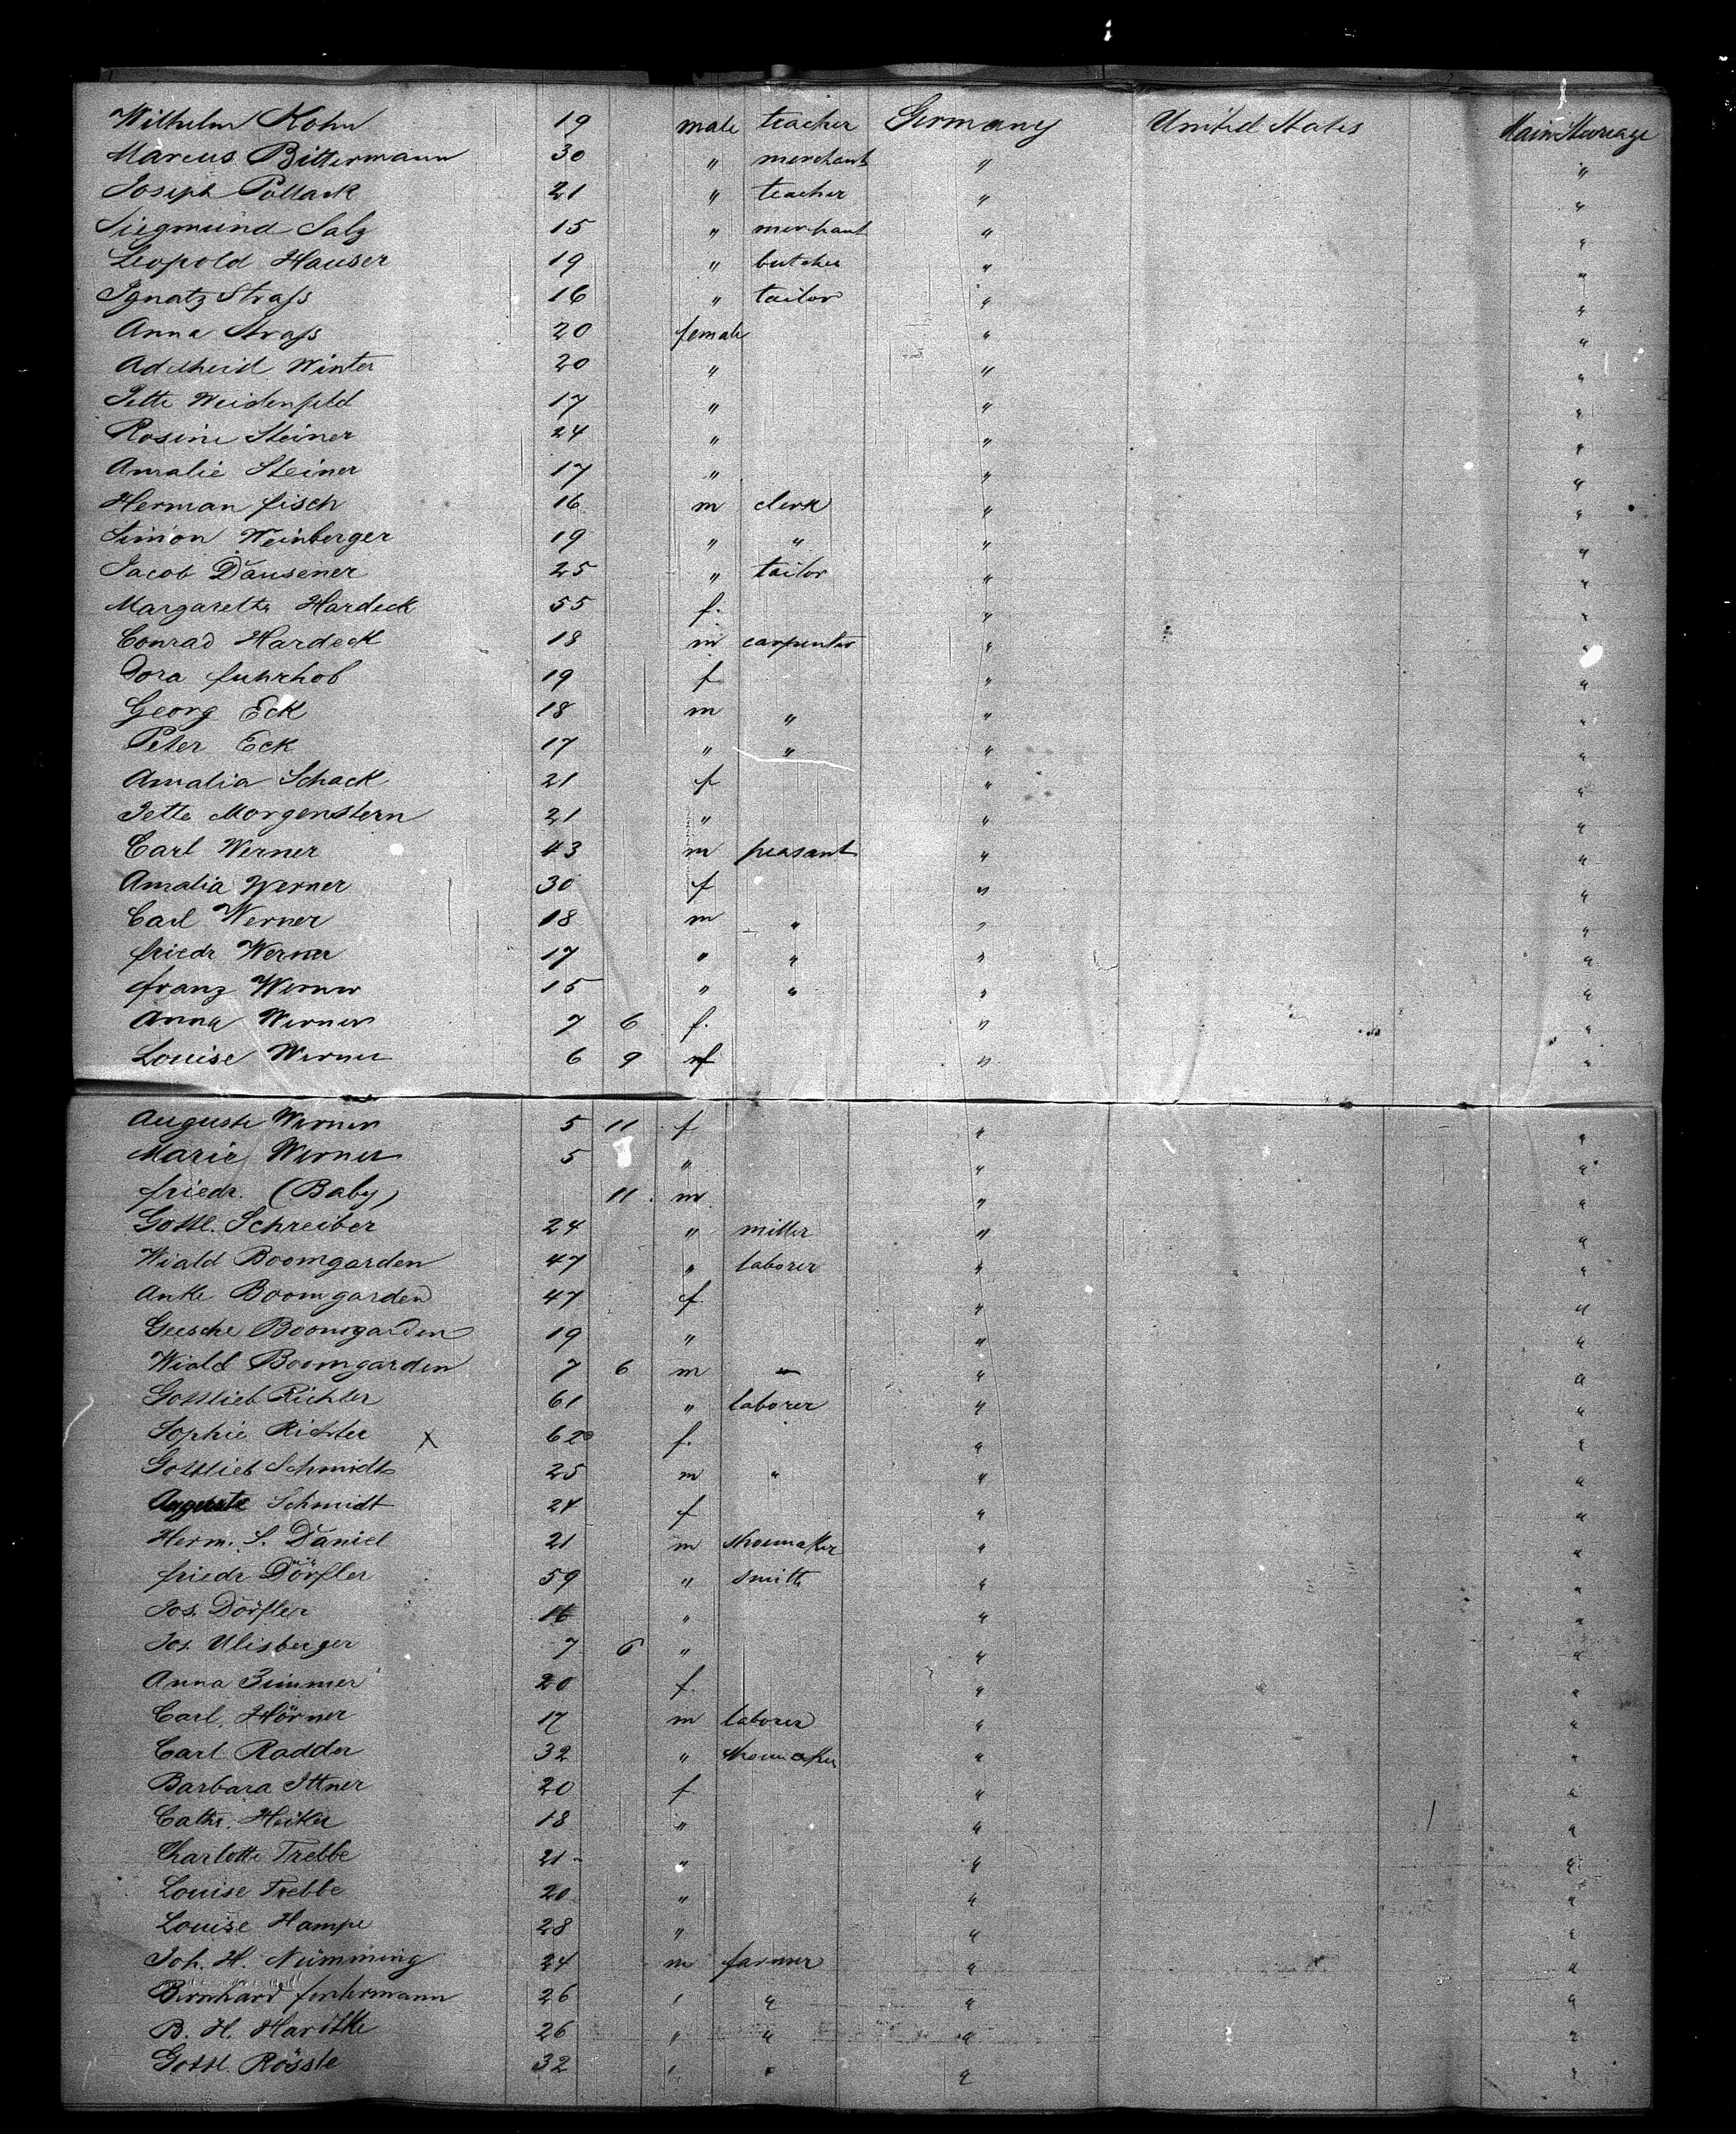 Wilhelm Kohn 19 male teacher Germany United States Main Steerage
Marcus Bittermann 30 " merchant " "
Joseph Pollack 21 " teacher " "
Siegmund Salz 15 " merchant " "
Leopold Hauser 19 " butcher " "
Ignatz Strass 16 " tailor " "
Anna Strass 20 female " "
Adelheid Winter 20 " " "
Jette Weidenfeld 17 " " "
Rosine Steiner 24 " " "
Amalie Steiner 17 " " "
Herman Fisch 16 m clerk " "
Simon Weinberger 19 " " " "
Jacob Dausener 25 " tailor " "
Margarethe Hardeck 55 f. " "
Conrad Hardeck 18 m carpenter " "
Dora Fuhrhob 19 f " "
Georg Eck 18 m " " "
Peter Eck 17 " " " "
Amalia Schack 21 f " "
Jette Morgenstern 21 " " "
Carl Werner 43 m peasant " "
Amalia Werner 30 f " "
Carl Werner 18 m " " "
Friedr Werner 17 " " " "
Franz Werner 15 " " " "
Anna Werner 7 6 f. " "
Louise Werner 6 9 f " "
Auguste Werner 5 11 f " "
Marie Werner 5 " " "
Friedr. (Baby) 11 m " "
Gottl. Schreiber 24 " miller " "
Wiald Boomgarden 47 " laborer " "
Antke Boomgarden 47 f " "
Geesche Boomgarden 19 " " "
Wiald Boomgarden 7 6 m " "
Gottlieb Richter 61 " laborer " "
Sophie Richter x 62 f. " "
Gottlieb Schmidt 25 m " " "
Auguste Schmidt 24 f " "
Herm. S. Daniel 21 m shoemaker " "
Friedr Dörfler 59 " smith " "
Jos. Dörfler 16 " " "
Jos. Ulisberger 7 6 " " "
Anna Zimmer 20 f " "
Carl Hörner 17 m laborer " "
Carl Radder 32 " shoemaker " "
Barbara Ittner 20 f " "
Cathr. Heitler 18 " " "
Charlotte Trebbe 21 " " "
Louise Trebbe 20 " " "
Louise Hampe 28 " " "
Joh. H. Nümming 24 m farmer " "
Bernhard Fentermann 26 " " " "
B. H. Haritke 26 " " " "
Gottl. Rössle 32 " " " "